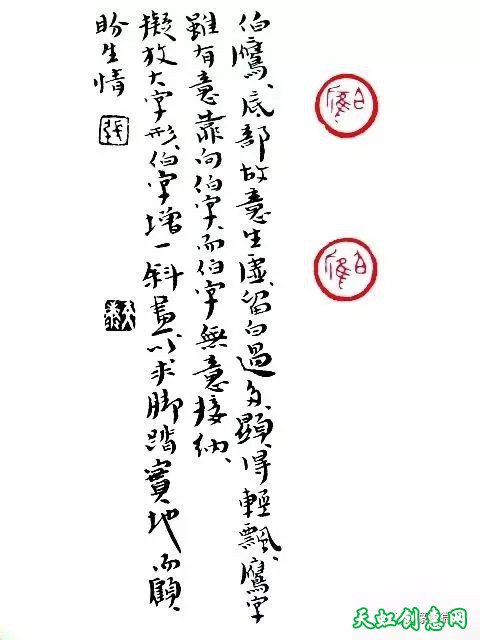 伯鷹、底部故意生虛、留白過多、顯得輕飄、鷹字
雖有意靠向伯字、而伯字無意接納、
擬放大字形、伯字增一斜畫、以求脚踏實地、而顧
盼生情
張
天虹创意网